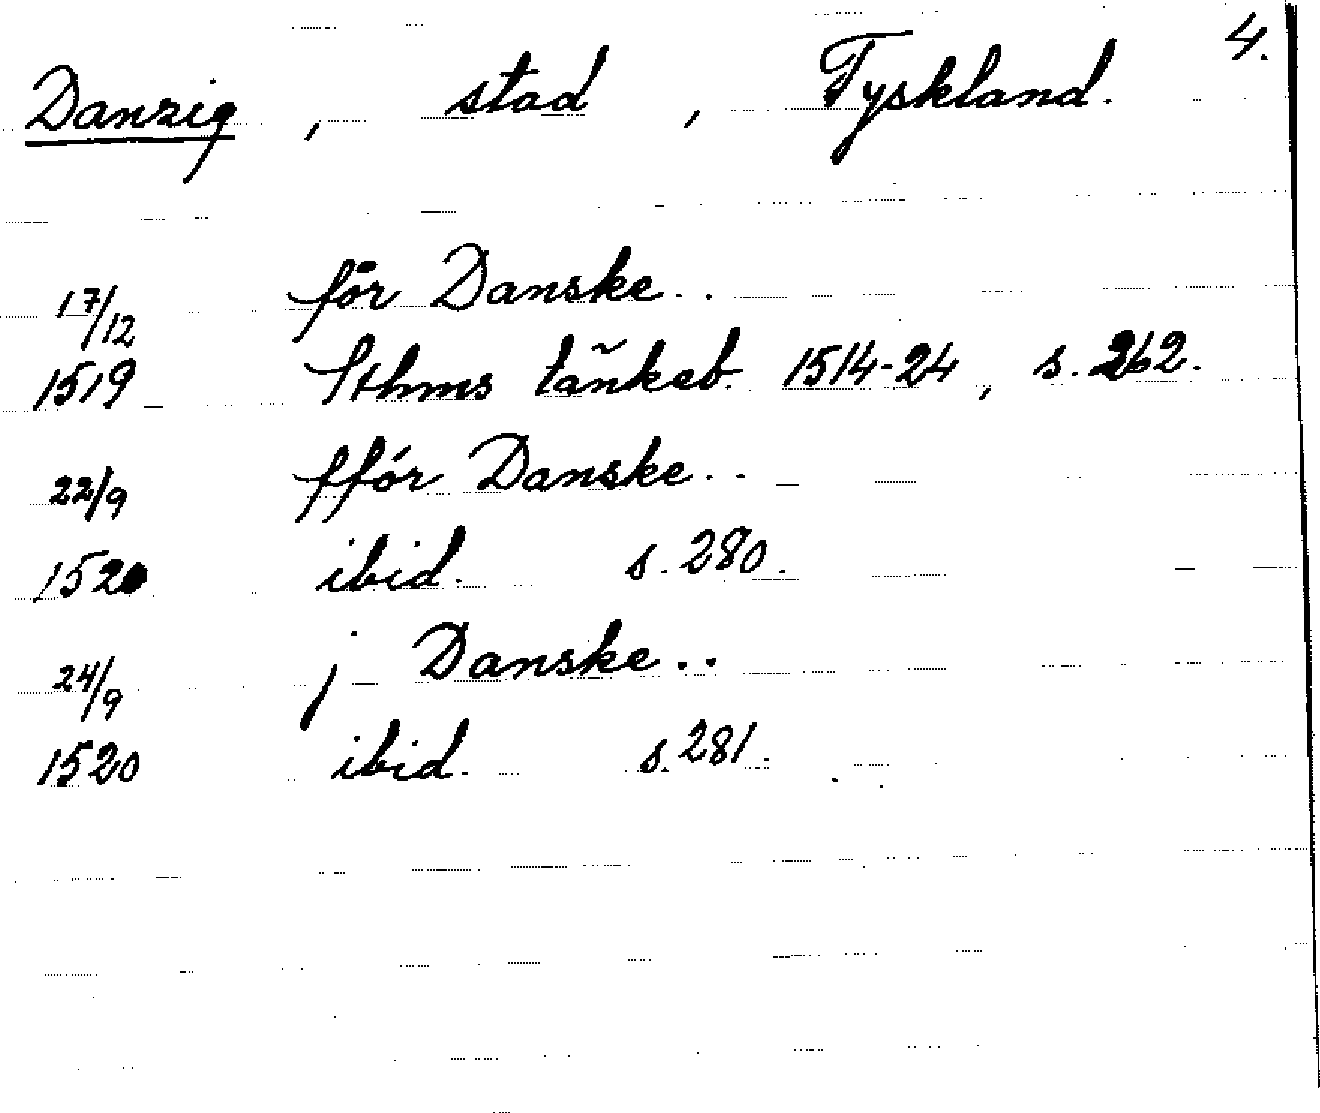 4.
Danzig, stad, Tyskland.
17/12 för Danske..
1519 Sthms täñkeb. 1514-24, s. 262.
22/9 ffór Danske..
1520 ibid. s. 280.
24/9 j Danske..
1520 ibid. s. 281.